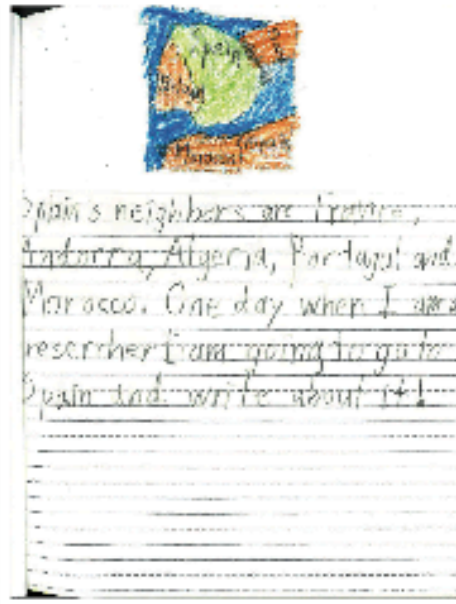 Spain
Spain's neighbors are France,
Andorra, Algeria, Portugul and
Morocco. One day when I am a
resercher I am going to go to
Spain and write about it!